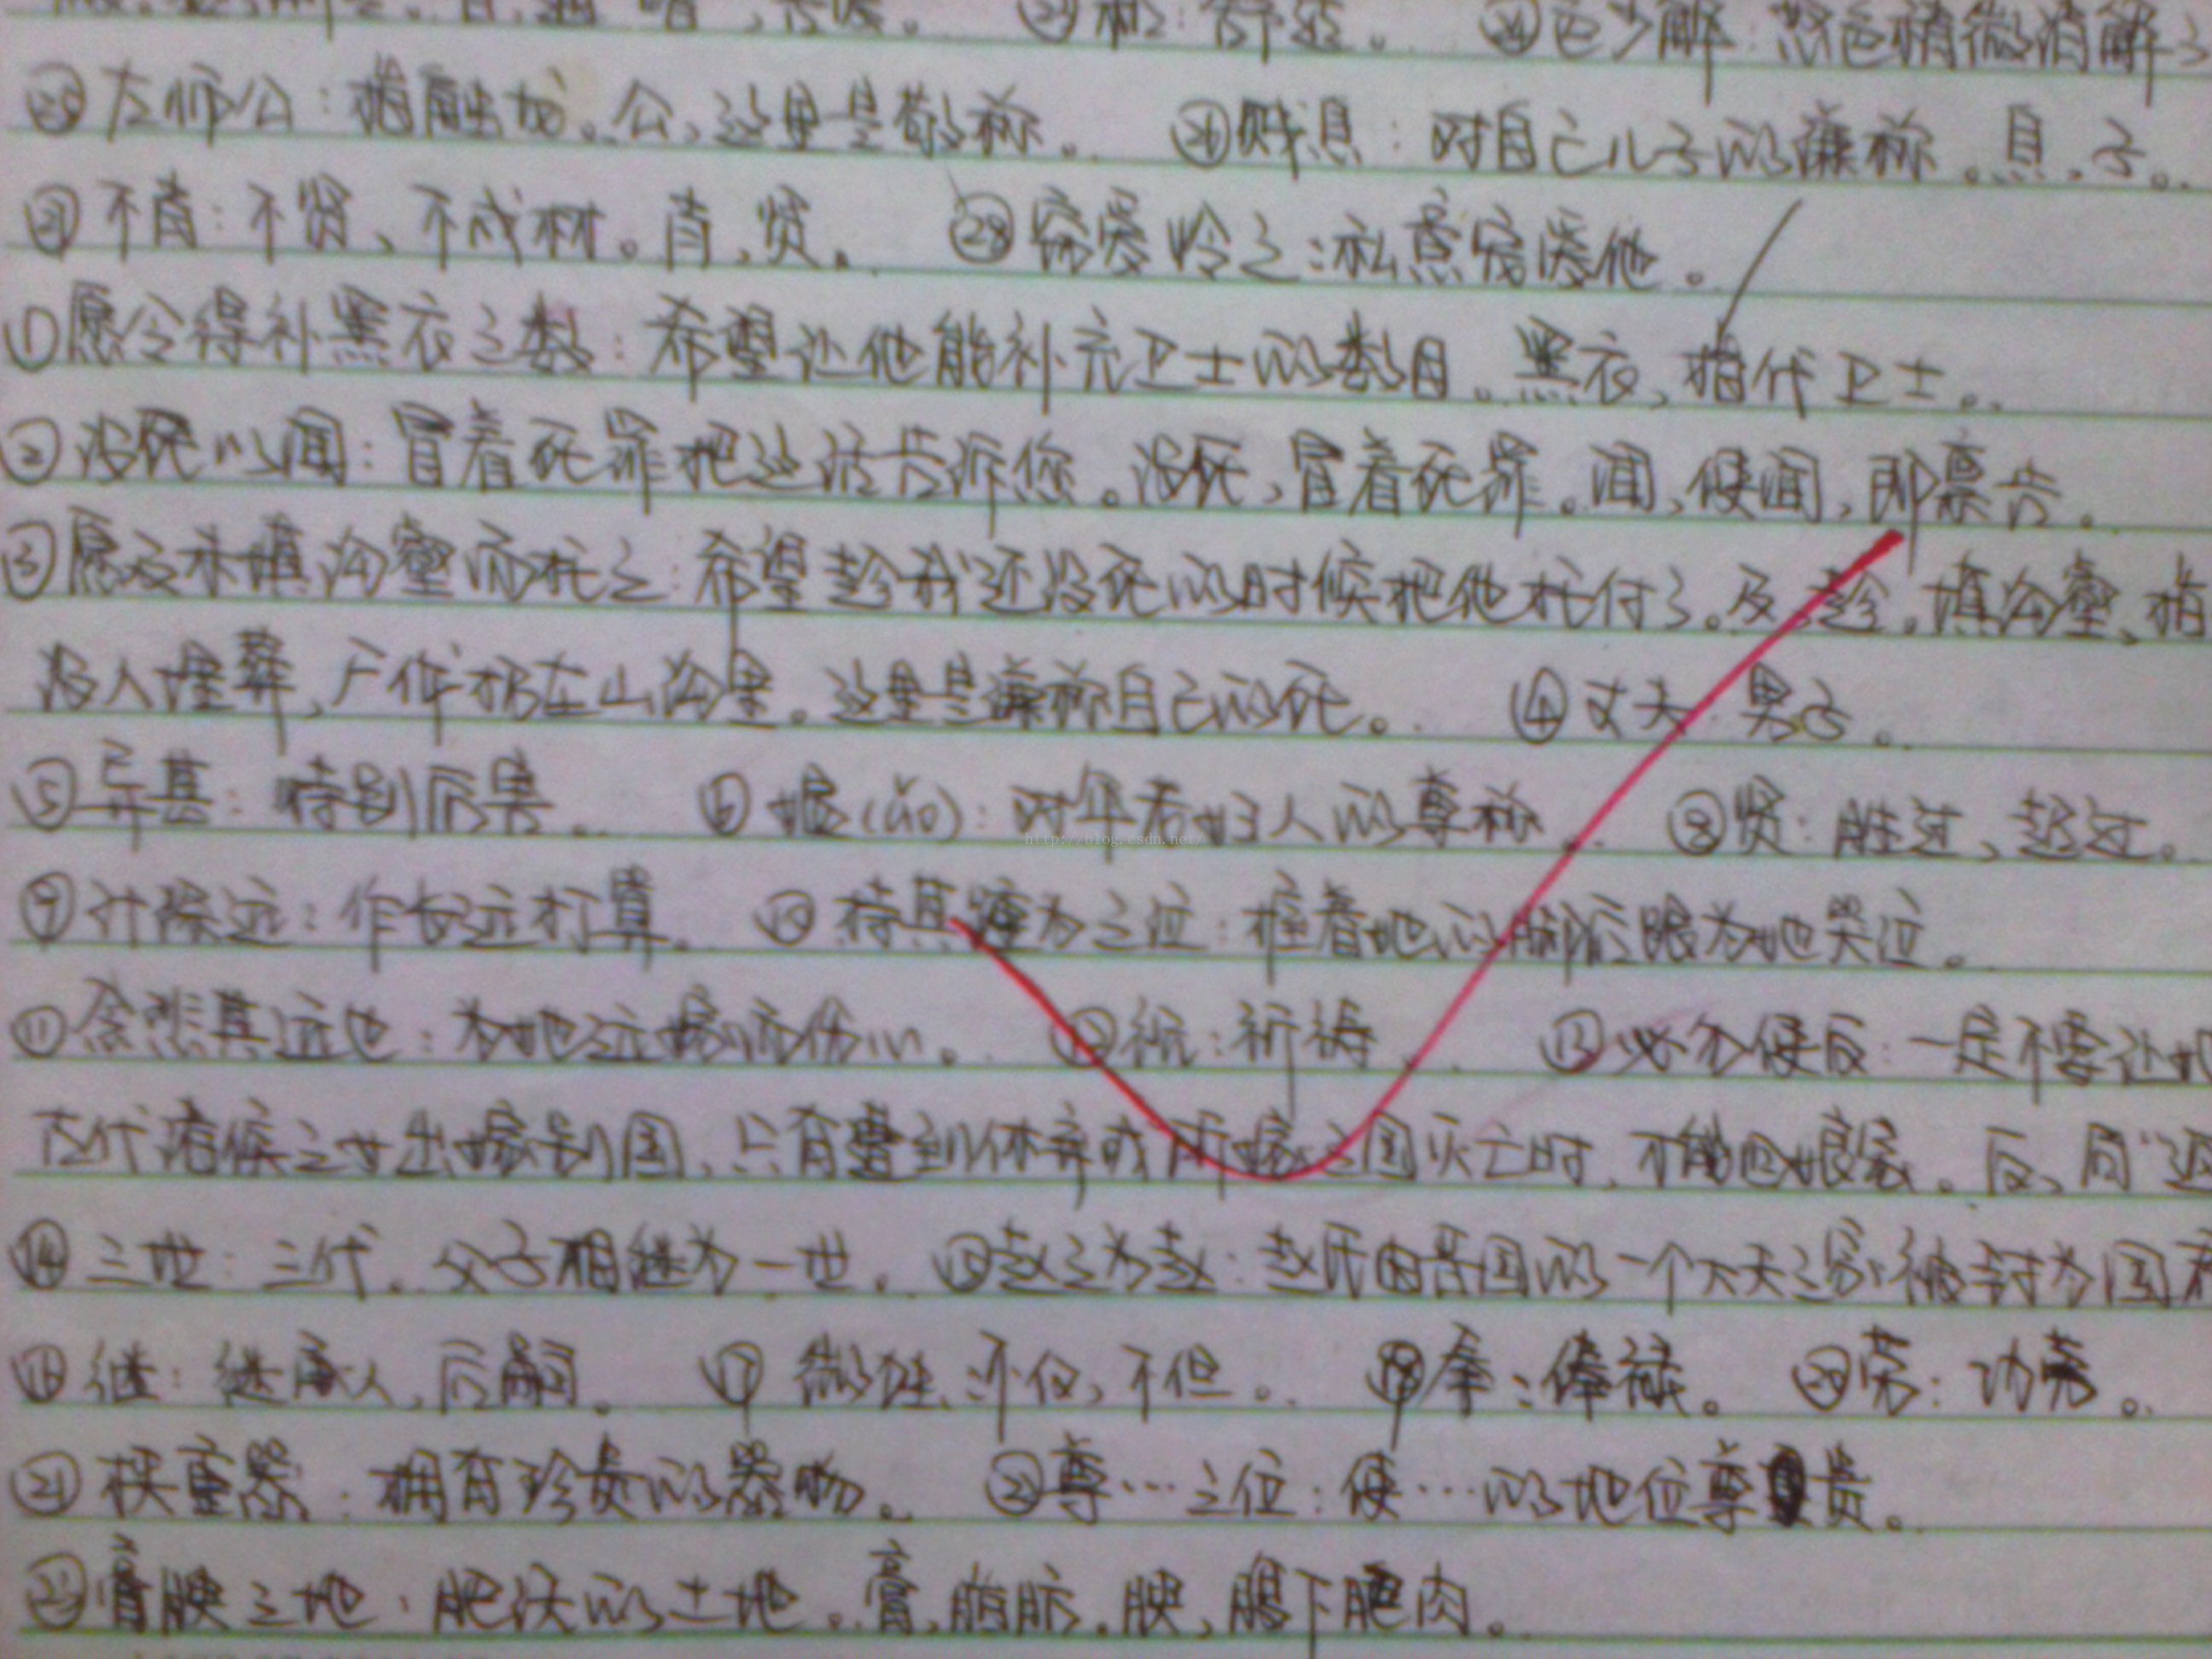 ㉔色少解：怒色稍微消解了
㉕左师公：指触龙。公，这里是敬称。 ㉖贱息：对自己儿子的谦称。息，子。
㉗不肖：不贤、不成材。肖，贤。 ㉘窃爱怜之：私意宠爱他。
①愿令得补黑衣之数：希望让他能补充卫士的数目。黑衣，指代卫士。
②没死以闻：冒着死罪把这话告诉您。没死，冒着死罪。闻，使闻，即禀告。
③愿及未填沟壑而托之：希望趁我还没死的时候把他托付了。及，趁。填沟壑，指
没人埋葬，尸体扔在山沟里。这里是谦称自己的死。 ④丈夫：男子。
⑤异甚：特别厉害。 ⑥媪(ǎo)：对年老妇人的尊称。 ⑧贤：胜过，超过。
http://blog.csdn.net/
⑨计深远：作长远打算。 ⑩持其踵为之泣：握着她的脚后跟为她哭泣。
⑪念悲其远也：为她远嫁而伤心。 ⑫祝：祈祷。 ⑬必勿使反：一定不要让她
古代诸侯之女出嫁别国，只有遭到休弃或所嫁之国灭亡时，才能回娘家。反，同“返
⑭三世：三代。父子相继为一世。 ⑮赵之为赵：赵氏由晋国的一个大夫之家被封为国
⑯继：继承人，后嗣。 ⑰微独：不仅，不但。 ⑲奉：俸禄。 ⑳劳：功劳。
㉑挟重器：拥有珍贵的器物。 ㉒尊…之位：使…的地位尊贵。
㉓膏腴之地：肥沃的土地。膏，脂肪。腴，腹下肥肉。